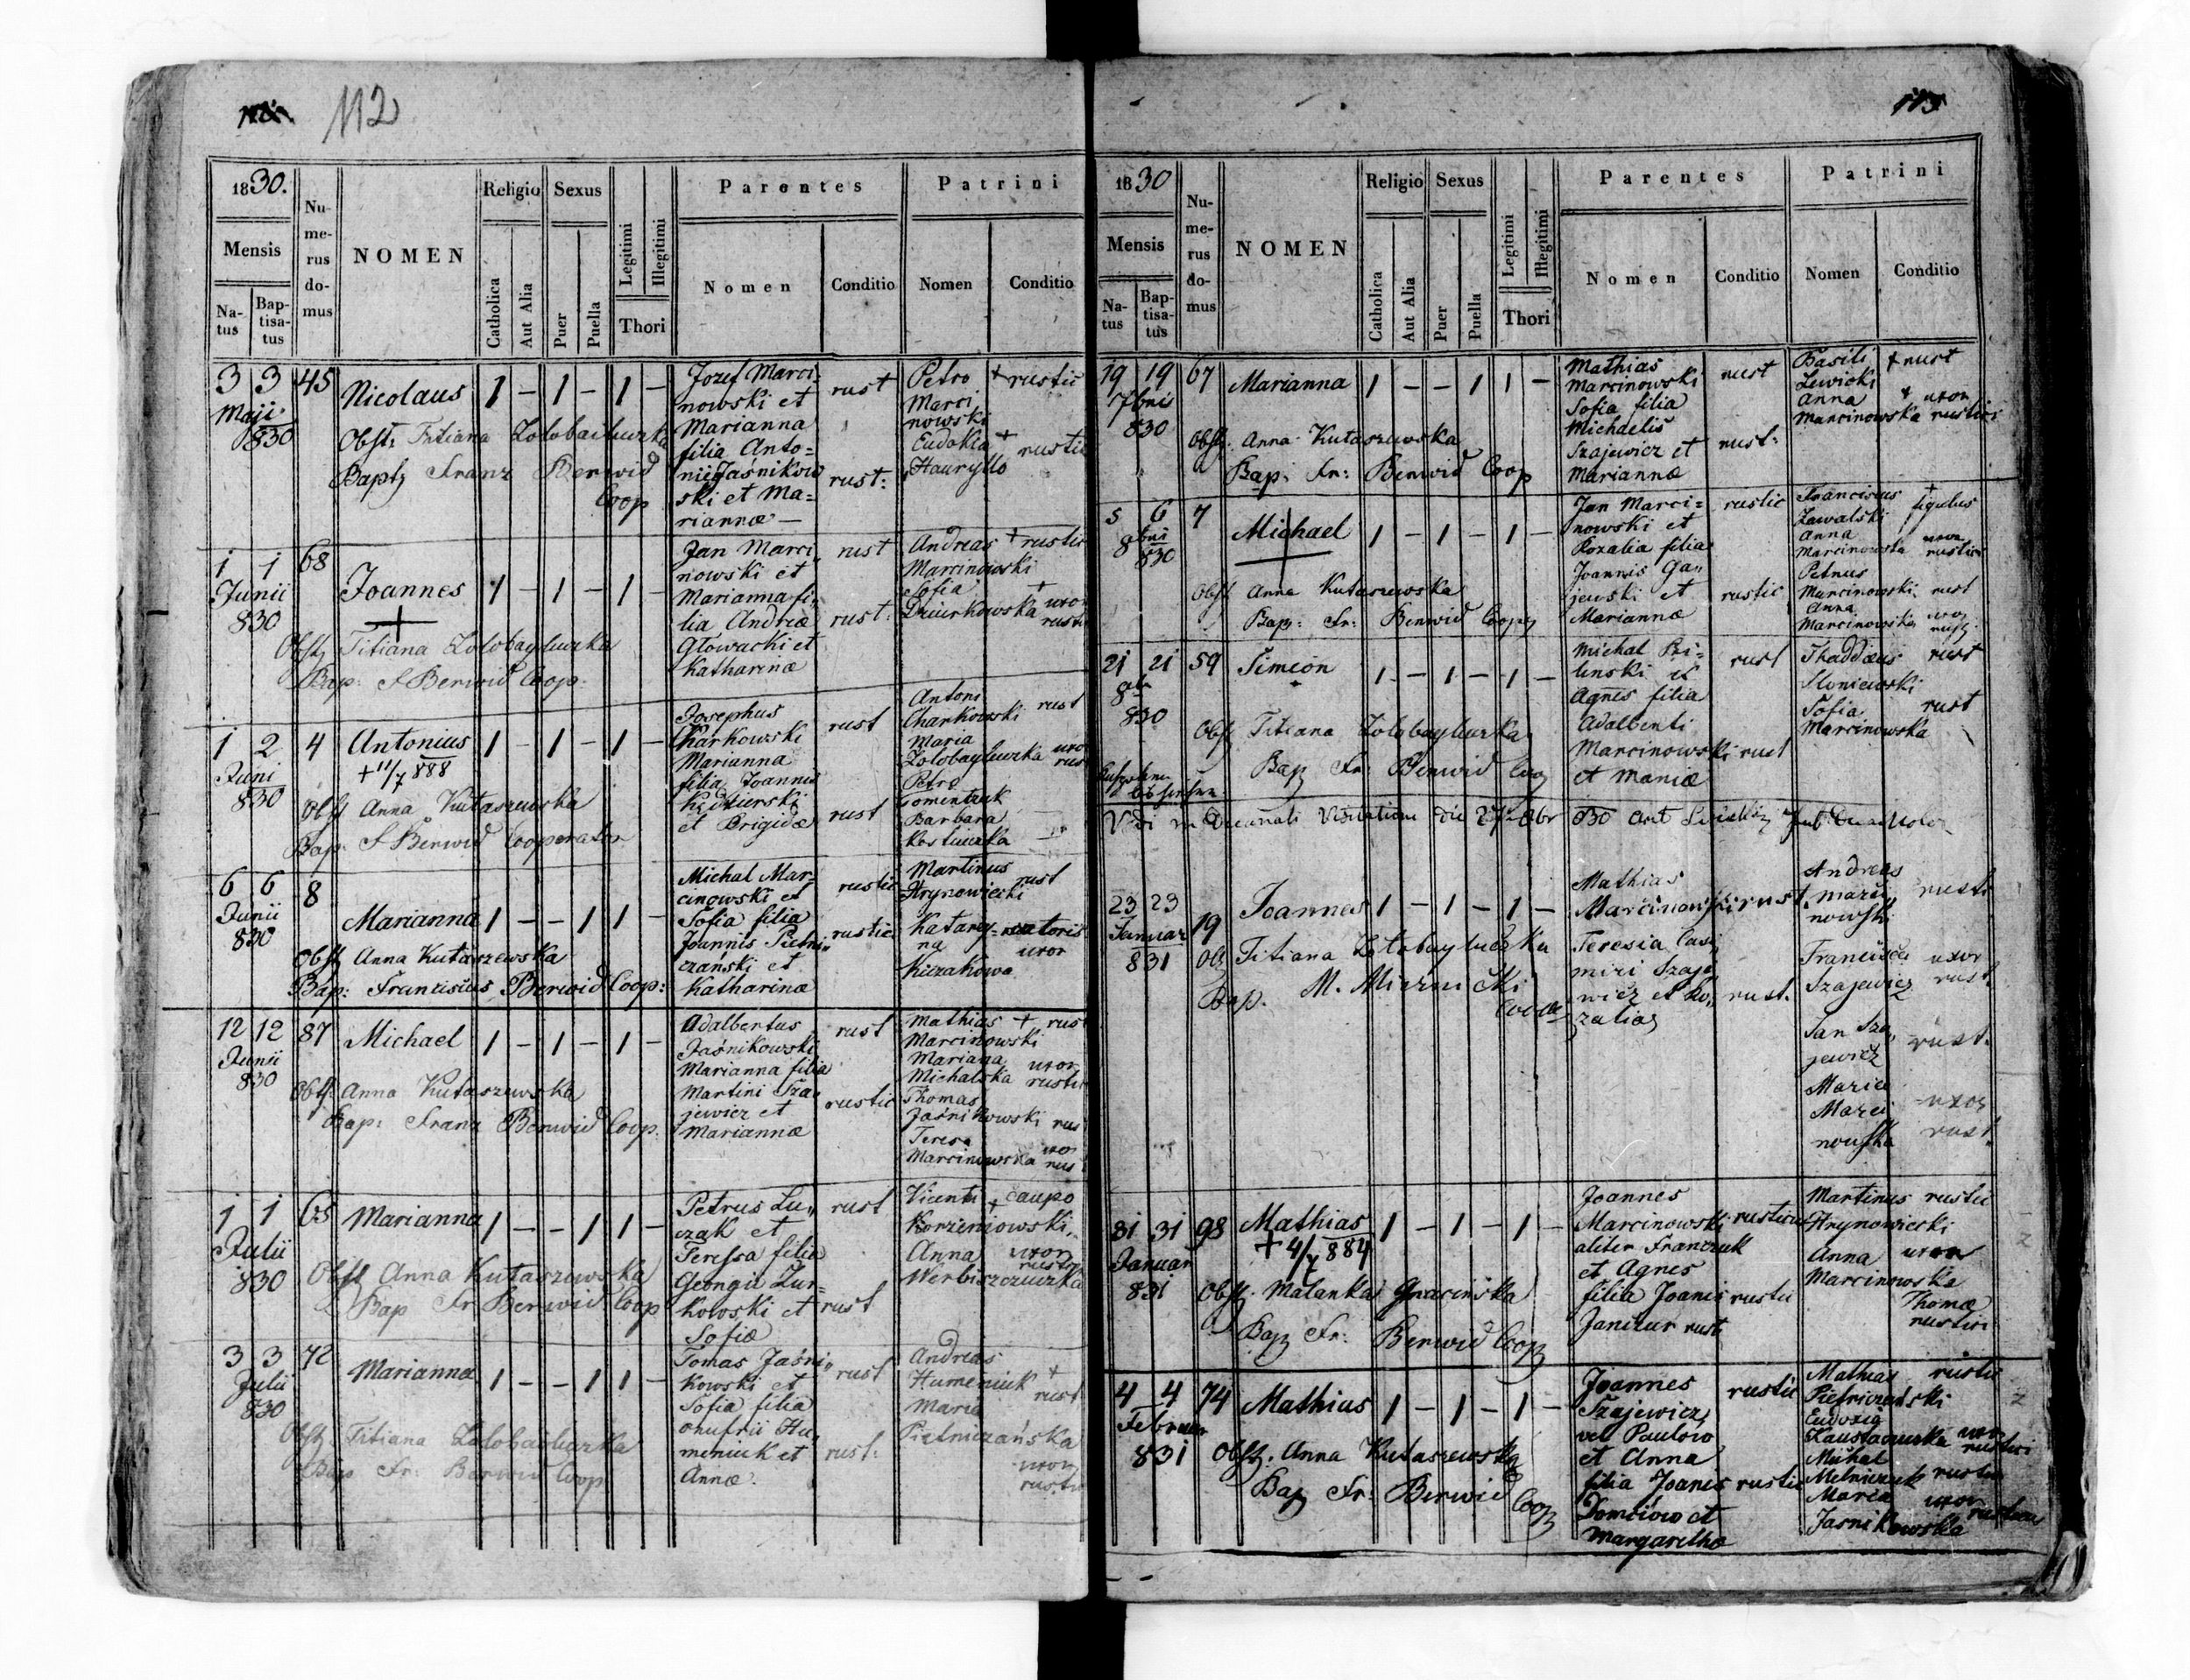 112
1830.
Mensis
Na-
tus
Bap-
tisa-
tus
Nu-
me-
rus
do-
mus
NOMEN
Religio
Catholica
Aut Alia
Sexus
Puer
Puella
Legitimi
Illegitimi
Thori
Parentes
Nomen
Conditio
Patrini
Nomen
Conditio
3 3 45 Nicolaus 1 – 1 – 1 –
Maji
830
Obst: Titiana
Bapt Franz Berwid
Coop
Jozef Marci- rust
nowski et
Marianna
filia Anto=
nii Jaśnikow
ski et Ma= rust:
riannæ —
Petro + rustic
Marci
nowski
Eudokia +
Hauryllo rustic
1 1 68 Joannes 1 – 1 – 1 –
Junii
830
Obst Titiana
Bap: F Berwid Coop:
Jan Marci rust
nowski et
Marianna fi
lia Andreæ rust:
Głowacki et
Katharinæ
Andreas + rustic
Marcinowski
Sofia +
uxor
1 2 4 Antonius 1 – 1 – 1 –
+ 11/7 888
Juni
830
Obst Anna Kutaszewska
Bap: F Berwid Cooperator
Josephus rust
Charkowski
Marianna
filia Joannis
et Brigidæ rust
Antoni
Charkowski rust
Maria
uxor
Petro
Barbara
6 6 8 Marianna 1 – – 1 1 –
Junii
830
Obst Anna Kutaszewska
Bap: Franciscus Berwid Coop:
Michal Mar- rustic
cinowski et
Sofia filia
Joannis Pietni- rustic
czański et
Katharinæ
Martinus
Hrynowiecki rust
Katarzy-
na uxor
Kiczakowa
12 12 87 Michael 1 – 1 – 1 –
Junii
830
Obst Anna Kutaszewska
Bap: Franz Berwid Coop.
Adalbertus rust
Jaśnikowski
Marianna filia
Martini Sza-
jewicz et rustic
Mariannæ
Mathias + rust
Marcinowski
Mariana uxor
Michalska rustic
Thomas
Jaśnikowski rus
Teresa
Marcinowska uxor
rus
1 1 65 Marianna 1 – – 1 1 –
Julii
830
Obst Anna Kutaszewska
Bap Fr Berwid Coop
Petrus Lu- rust
czak et
Teressa filia
Georgii Zur-
kowski et rust
Sofiæ
Vicenti + caupo
Korzeniowski
Anna uxor
3 3 72 Marianna 1 – – 1 1 –
Julii
830
Obst Titiana
Bap Fr: Berwid Coop
Tomas Jaśni- rust
kowski et
Sofia filia
Onufrii Hu-
meniuk et rust:
Annæ.
Andreas
Humeniuk + rust
Maria
Pietniczańska
uxor
rustic
1830
Mensis
Na-
tus
Bap-
tisa-
tus
Nu-
me-
rus
do-
mus
NOMEN
Religio
Catholica
Aut Alia
Sexus
Puer
Puella
Legitimi
Illegitimi
Thori
Parentes
Nomen
Conditio
Patrini
Nomen
Conditio
19 19 67 Marianna 1 – – 1 1 –
7bris
830
Obst. Anna Kutaszewska
Bap: Fr: Berwid Coop
Mathias
Marcinowski rust
Sofia filia
Michaelis
Szajewicz et rust:
Mariannæ
Basili + rust
Lewicki
Anna + uxor
Marcinowska rustici
5 6 7 Michael 1 – 1 – 1 –
8bris
830
Obst Anna Kutaszewska
Bap: Fr: Berwid Coop
Jan Marci= rustic
nowski et
Rozalia filia
Joannis Ga-
jewski et rustic
Mariannæ
Franciscus +
Zawalski figulus
Anna
Marcinowska rustic
Petrus
Marcinowski rust
Anna
Marcinowska
21 21 59 Simeon 1 – 1 – 1 –
8bris
830
Obst Titiana
Bap Fr: Berwid Coop
Michal Bi- rust
linski et
Agnes filia
Adalberti
Marcinowski rust
et Mariæ
Thaddæus rust
Sloniewski
Sofia rust
Marcinowska
Vidi in Decanali Visitatione die
23 23 19 Joannes 1 – 1 – 1 –
Januar
831
Ob Titiana
Bap. M.
Mathias
Marcinowski rust
Teresia Casi
miri Szaje
wicz et Ro- rust.
zaliæ
Andreas
Marci rusti
nowski
Francisca uxor
Szajewicz rust.
Jan Sza-
jewicz rust.
Maria
Marci uxor
nowska rust.
31 31 98 Mathias 1 – 1 – 1 –
+ 4/7 884
Januar
831
Obst. Malanka
Bap Fr: Berwid Coop
Joannes
Marcinowski rusticus
aliter Franczuk
et Agnes
filia Joanis rustic
Janczur rusti
Martinus rustic
Hrynowiecki
Anna uxor
Marcinowska
Thomæ
rustici
4 4 74 Mathias 1 – 1 – 1 –
Februar
831
Obst. Anna Kutaszewska
Bap Fr: Berwid Coop
Joannes rustic
Szajewicz
vel Paulow
et Anna
filia Joanis rustic
Domciow et
Margarethæ
Mathias rustic
Pietniczański
Michal
Melniczuk rustic
Maria uxor
Jasnikowska rustici